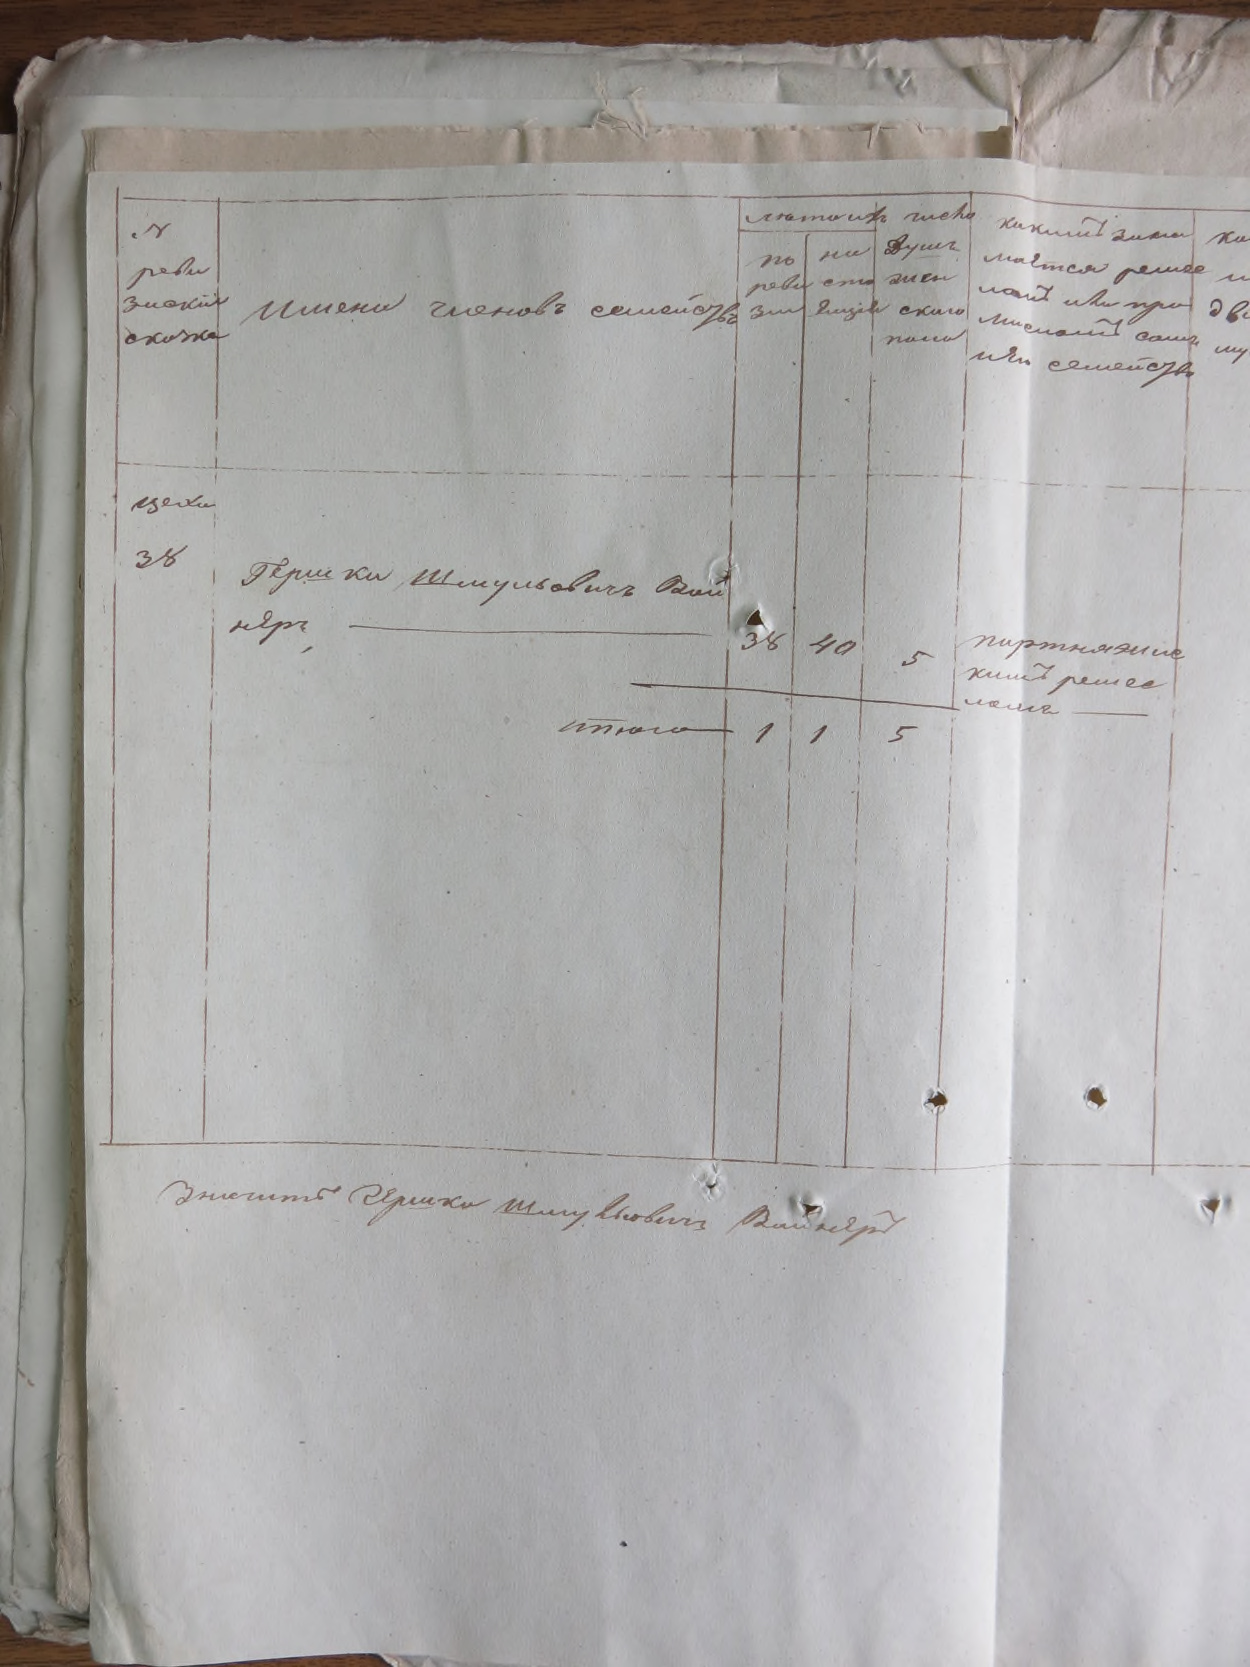 №
реви
зский
сказка
Имена членовъ семействъ
лета ихъ
по
реви
зии
на
сто
ящій
число
душъ
жен
скаго
пола
какимъ зани
мается ремес
ломъ или про
мысломъ самъ
или семейство
цехи
38
Гершко Шмульовичъ Вай
неръ
38 40 5
портняжес
кимъ ремес
ломъ
итого 1 1 5
Значитъ Гершко Шмульовичъ Вайнеръ